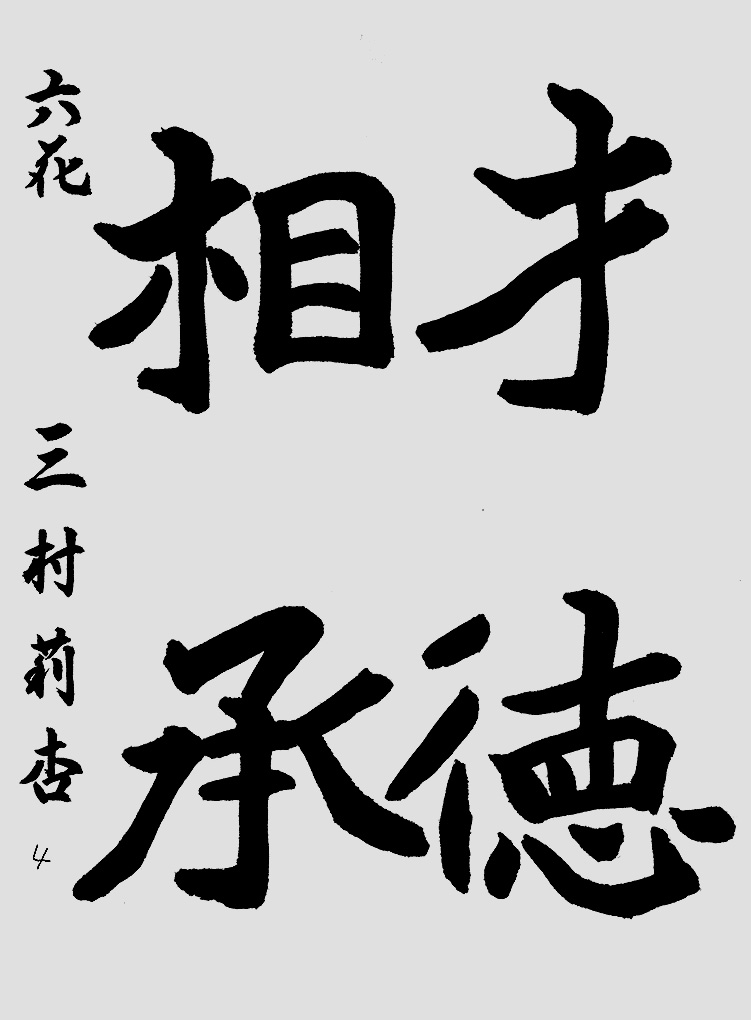 才徳
相承
六花 三村莉杏 4